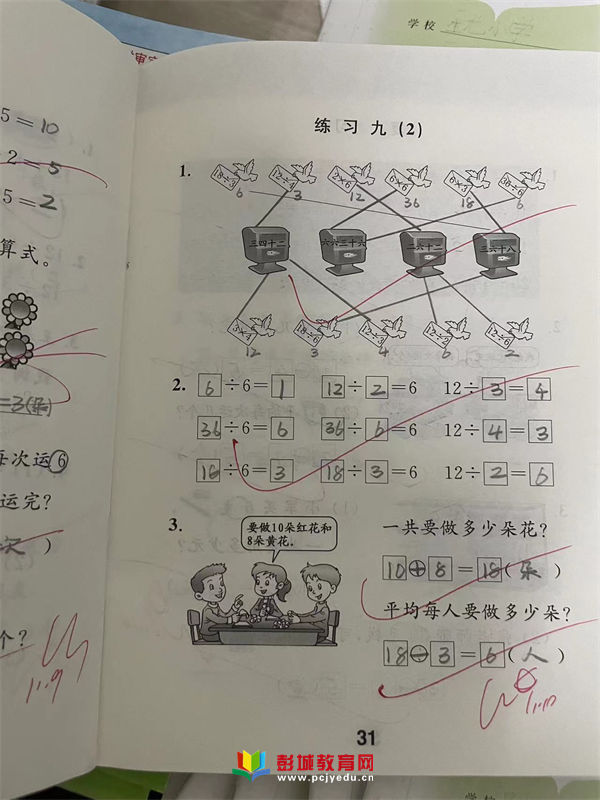 学校
5=10
2=5
5=2
算式。
=3(朵)
每次运6
运完?
次)
个?
11.9
练习九(2)
1.
18÷3 12÷4 2×6 6×6 6×3 36÷6
6 3 12 36 18 6
三四十二 六六三十六 二六十二 三六十八
3×4 18÷6 12÷3 12÷2 12÷6
12 3 4 6 2
2. 6÷6=1 12÷2=6 12÷3=4
36÷6=6 36÷6=6 12÷4=3
18÷6=3 18÷3=6 12÷2=6
3.
要做10朵红花和
8朵黄花。
一共要做多少朵花?
10+8=18(朵)
平均每人要做多少朵?
18÷3=6(人)
11.10
31
彭城教育网
www.pcjyedu.cn
学校